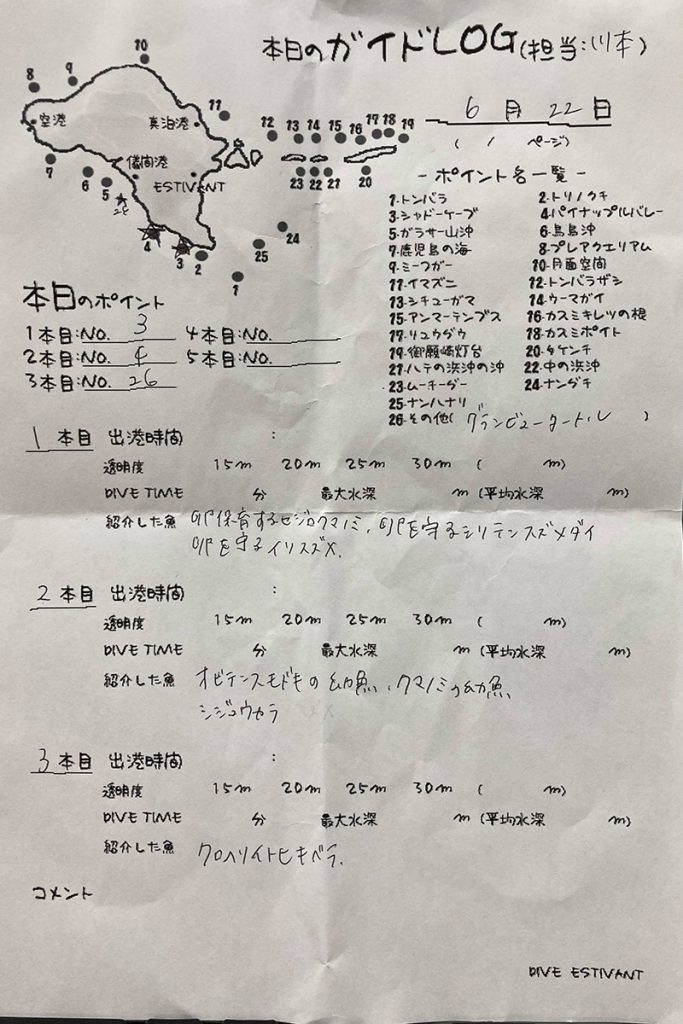 本日のガイドLOG(担当:川本)
6月22日
( / ページ)
10
9
8
空港
真泊港
11
12 13 14 15 16 17 18 19
儀間港
ESTIVANT
7
6
5
26
23 22 21
20
4
3
2
25
24
1
-ポイント名一覧-
1-トンバラ 2-トリノクチ
3-シャドーケーブ 4-パイナップルバレー
5-ガラサー山沖 6-鳥島沖
7-鹿児島の海 8-プレアクエリアム
9-ミーフガー 10-月面空間
11-イマズニ 12-トンバラザシ
13-シチューガマ 14-ウーマガイ
15-アンマーテンプス 16-カスミキレツの根
17-リュウグウ 18-カスミポイト
19-御願崎灯台 20-タケンチ
21-ハテの浜沖の沖 22-中の浜沖
23-ムーチーグー 24-ナングチ
25-ナンハナリ
26-その他(グランビュータートル)
本日のポイント
1本目:NO. 3 4本目:NO.
2本目:NO. 4 5本目:NO.
3本目:NO. 26
1本目 出港時間 :
透明度 15m 20m 25m 30m ( m)
DIVE TIME 分 最大水深 m (平均水深 m)
紹介した魚 卵保育するセジロクマノミ、卵を守るシリテンスズメダイ
卵を守るイソスズメ、
2本目 出港時間 :
透明度 15m 20m 25m 30m ( m)
DIVE TIME 分 最大水深 m (平均水深 m)
紹介した魚 オビテンスモドキの幼魚、クマノミの幼魚
シジュウカラ
3本目 出港時間 :
透明度 15m 20m 25m 30m ( m)
DIVE TIME 分 最大水深 m (平均水深 m)
紹介した魚 クロヘリイトヒキベラ、
コメント
DIVE ESTIVANT